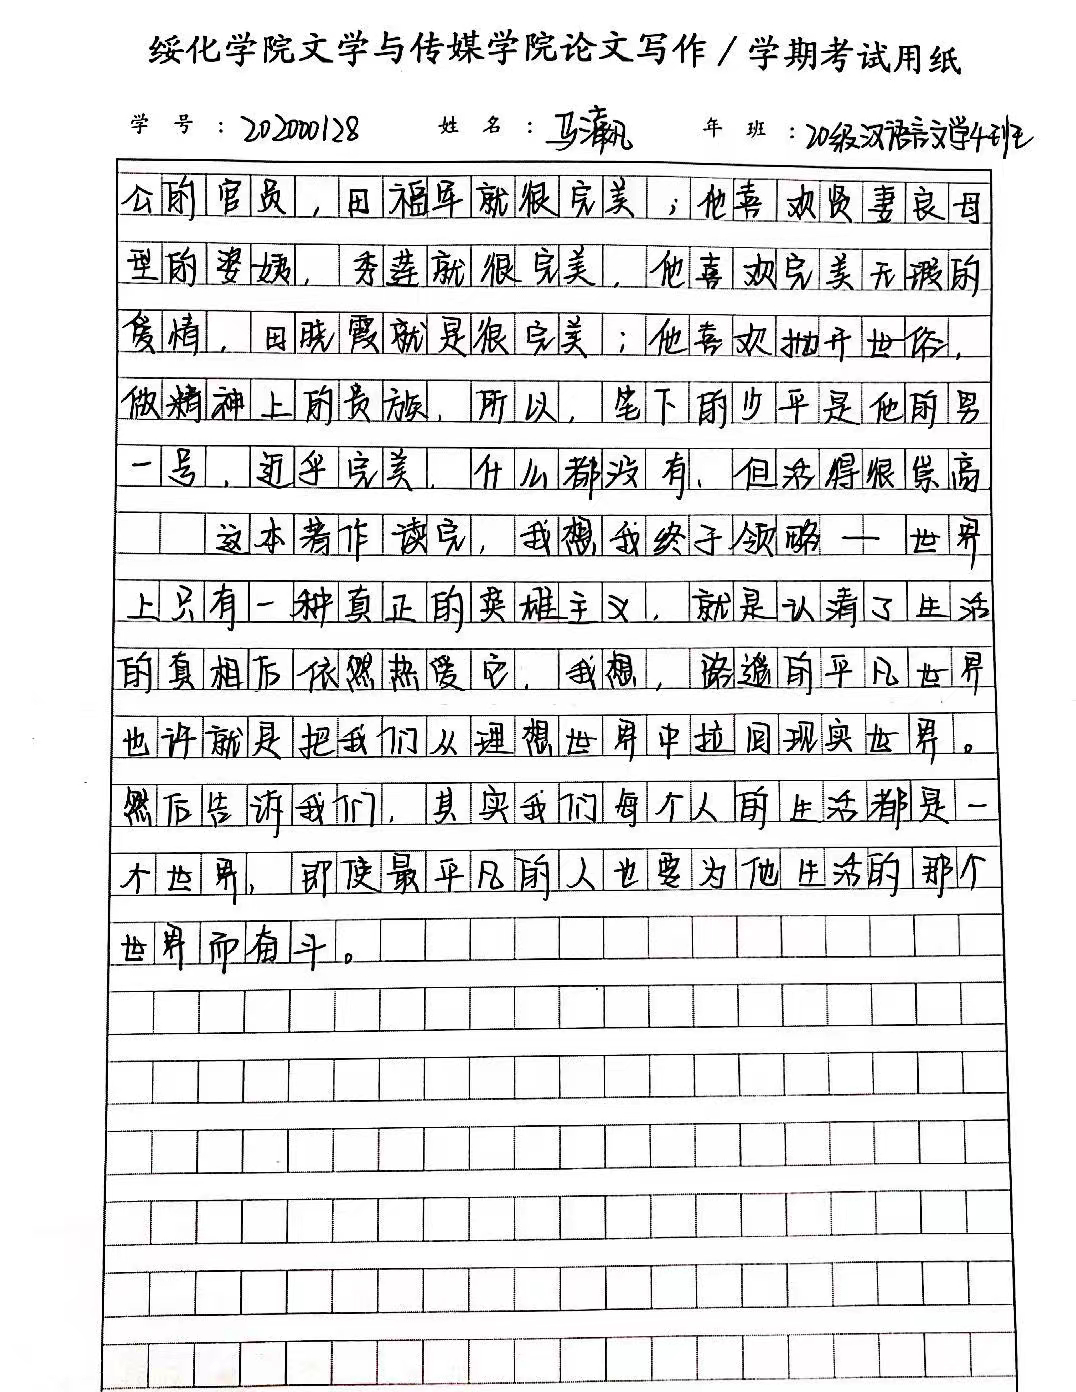 绥化学院文学与传媒学院论文写作/学期考试用纸
学号:202000128 姓名:马潇飒 年班:20级汉语言文学4班
公的官员,田福军就很完美;他喜欢贤妻良母
型的婆姨,秀莲就很完美,他喜欢完美无瑕的
爱情,田晓霞就是很完美;他喜欢抛开世俗,
做精神上的贵族,所以,笔下的少平是他的男
一号,近乎完美,什么都没有,但活得很崇高
这本著作读完,我想我终于领略一世界
上只有一种真正的英雄主义,就是认清了生活
的真相后依然热爱它,我想,路遥的平凡世界
也许就是把我们从理想世界中拉回现实世界。
然后告诉我们,其实我们每个人的生活都是一
个世界,即使最平凡的人也要为他生活的那个
世界而奋斗。